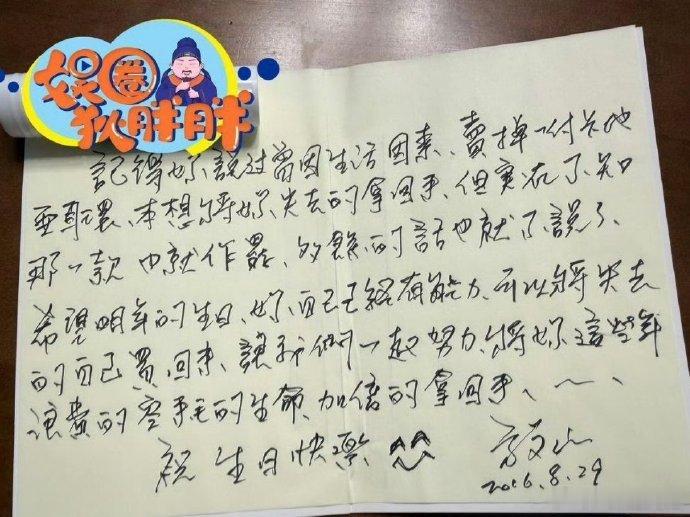 娱圈
狄胖胖
記得妳說过曾因生活因素、賣掉一付卡地
亞耳環、本想將妳失去的拿回来、但实在不知
那一款也就作罷、多餘的話也就不說了、
希望明年的生日、妳自己已經有能力、可以將失去
的自己買回来、讓我們一起努力、將妳這些年
浪費的 的生命、加倍的拿回来、
祝生日快樂
2016.8.29